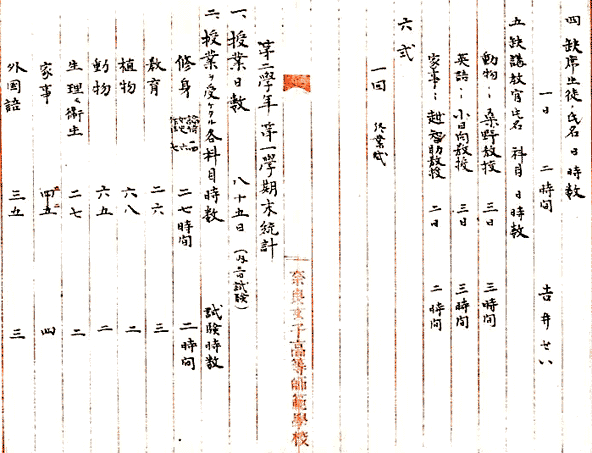 四 缺席生徒氏名日時数
一日 二時间 吉井せい
五 缺講教官氏名 科目 日時数
動物 桑野教授 三日 三時间
英語 小日向教授 三日 三時间
家事 越智助教授 二日 二時间
六 式
一回 終業式
奈良女子高等師範學校
第二學年 第一學期末統計
一、授業日数 八十五日 (内六日試験)
二、授業ヲ受ケタル各科目時数 試験時数
修身 二七時间 二時间
教育 二六 三
植物 六八 二
動物 六五 二
生理及衛生 二七 二
家事 四五 四
外国語 三五 三